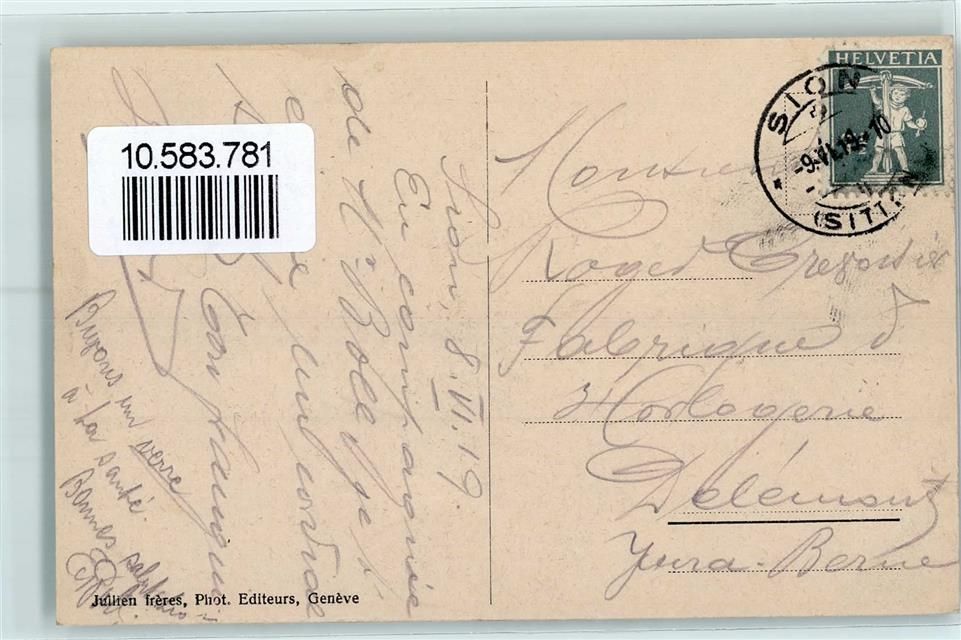 10.583.781
HELVETIA
SION
-9.VI.19.-10
(SITTEN)
Sion, 8.VI.19
En compagnie
de Mr Bolliger,
cordiale
Buvons un verre
à ta santé.
Bonnes salutations
Monsieur
Roger
Fabrique d'
Horlogerie
Delémont
Jura-Berne
Jullien frères, Phot. Editeurs, Genève